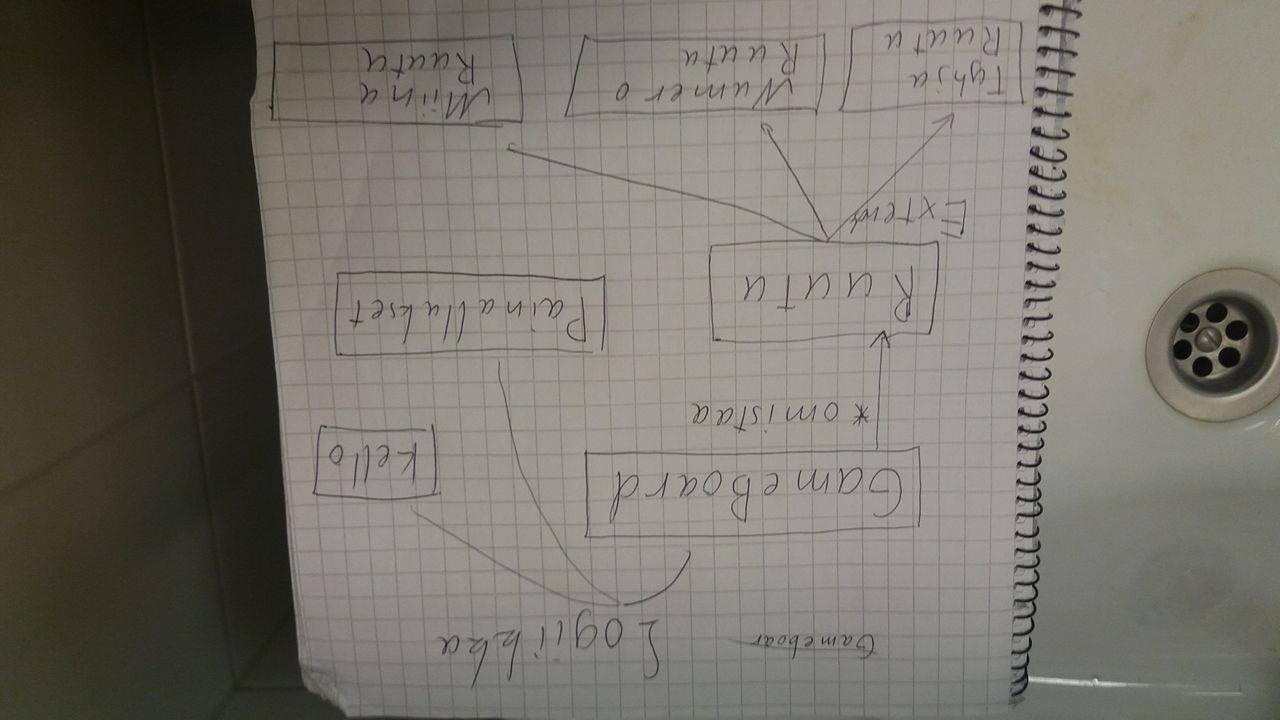 Gameboar
Logiikka
GameBoard
Kello
* omistaa
Ruutu
Painallukset
Extends
Tyhja
Ruutu
Numero
Ruutu
Miina
Ruutu